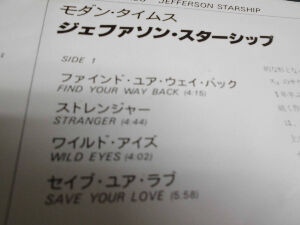 JEFFERSON STARSHIP
モダン・タイムス
ジェファソン・スターシップ
SIDE 1
ファインド・ユア・ウェイ・バック
FIND YOUR WAY BACK (4:15)
ストレンジャー
STRANGER (4:44)
ワイルド・アイズ
WILD EYES (4:02)
セイブ・ユア・ラブ
SAVE YOUR LOVE (5:58)